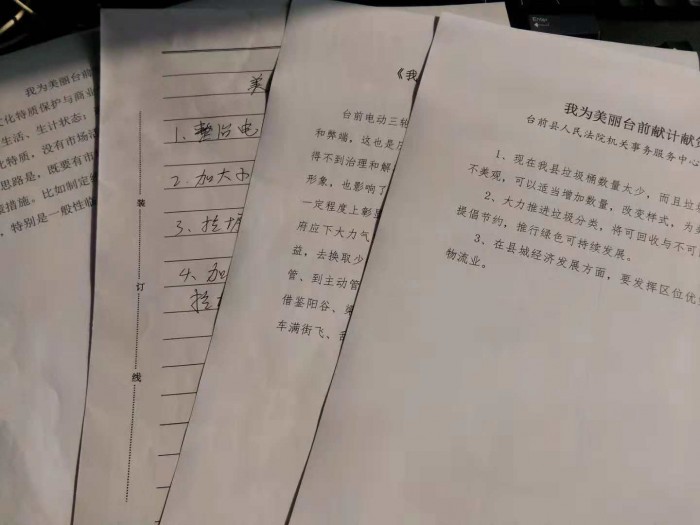 我为美丽台前
化特质保护与商业
生活、生计状态;
化特质,没有市场活
思路是,既要有市
措施。比如制定
,特别是一般性临
美
1、整治电
2、加大小
3、拉坊
4、加
装
订
线
《我
台前电动三轮
和弊端,这也是
得不到治理和解
形象,也影响了
一定程度上彰显
府应下大力气
益,去换取少
管、到主动管
借鉴阳谷、梁
车满街飞、
我为美丽台前献计献
台前县人民法院机关事务服务中心
1、现在我县垃圾桶数量太少,而且垃圾
不美观,可以适当增加数量,改变样式,为美
2、大力推进垃圾分类,将可回收与不可
提倡节约,推行绿色可持续发展。
3、在县城经济发展方面,要发挥区位优
物流业。